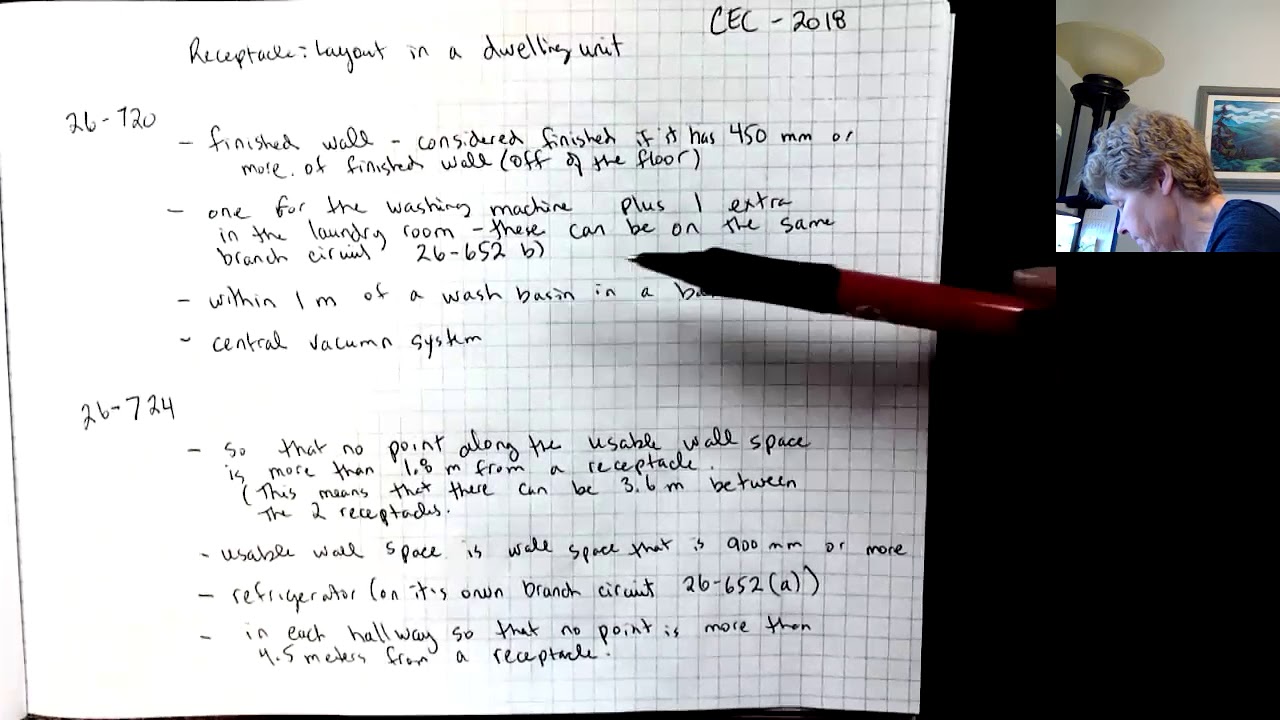 CEC - 2018
Receptacle: Layout in a dwelling unit
26-720
- finished wall - considered finished if it has 450 mm or
more. of finished wall (off of the floor)
- one for the washing machine plus 1 extra
in the laundry room - these can be on the same
branch circuit 26-652 b)
- within 1 m of a wash basin in a
- central vacumn system
26-724
- so that no point along the usable wall space
is more than 1.8 m from a receptacle.
(This means that there can be 3.6 m between
the 2 receptacles.
- usable wall space is wall space that is 900 mm or more
- refrigerator (on it's own branch circuit 26-652(a))
- in each hallway so that no point is more than
4.5 meters from a receptacle.